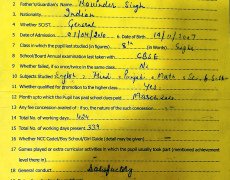 2. Father's/Guardian's Name Ravinder Singh
3. Nationality Indian
4. Whether SC/ST General
5. Date of Admission 01/04/2010 6. Date of Birth 19/11/2007
7. Class in which the pupil last studied (in figures) 8th (in words) Eight
8. School/Board Annual examination last taken with CBSE
9. Whether failed, if so once/twice in the same class No
10. Subjects Studied English Hindi Punjabi Math Sci.
11. Whether qualified for promotion to the higher class Yes
12. Month upto which the Pupil has paid school dues paid March
13. Any fee concession availed of: if so, the nature of such concession
14. Total No. of working days 204
15. Total No. of working days present
16. Whether NCC Cadet/Boy Scout/Girl Guide (detail may be given)
17. Games played or extra curricular activities in which the pupil usually took part (mentioned achievement
level there in)
18. General conduct Satisfactory